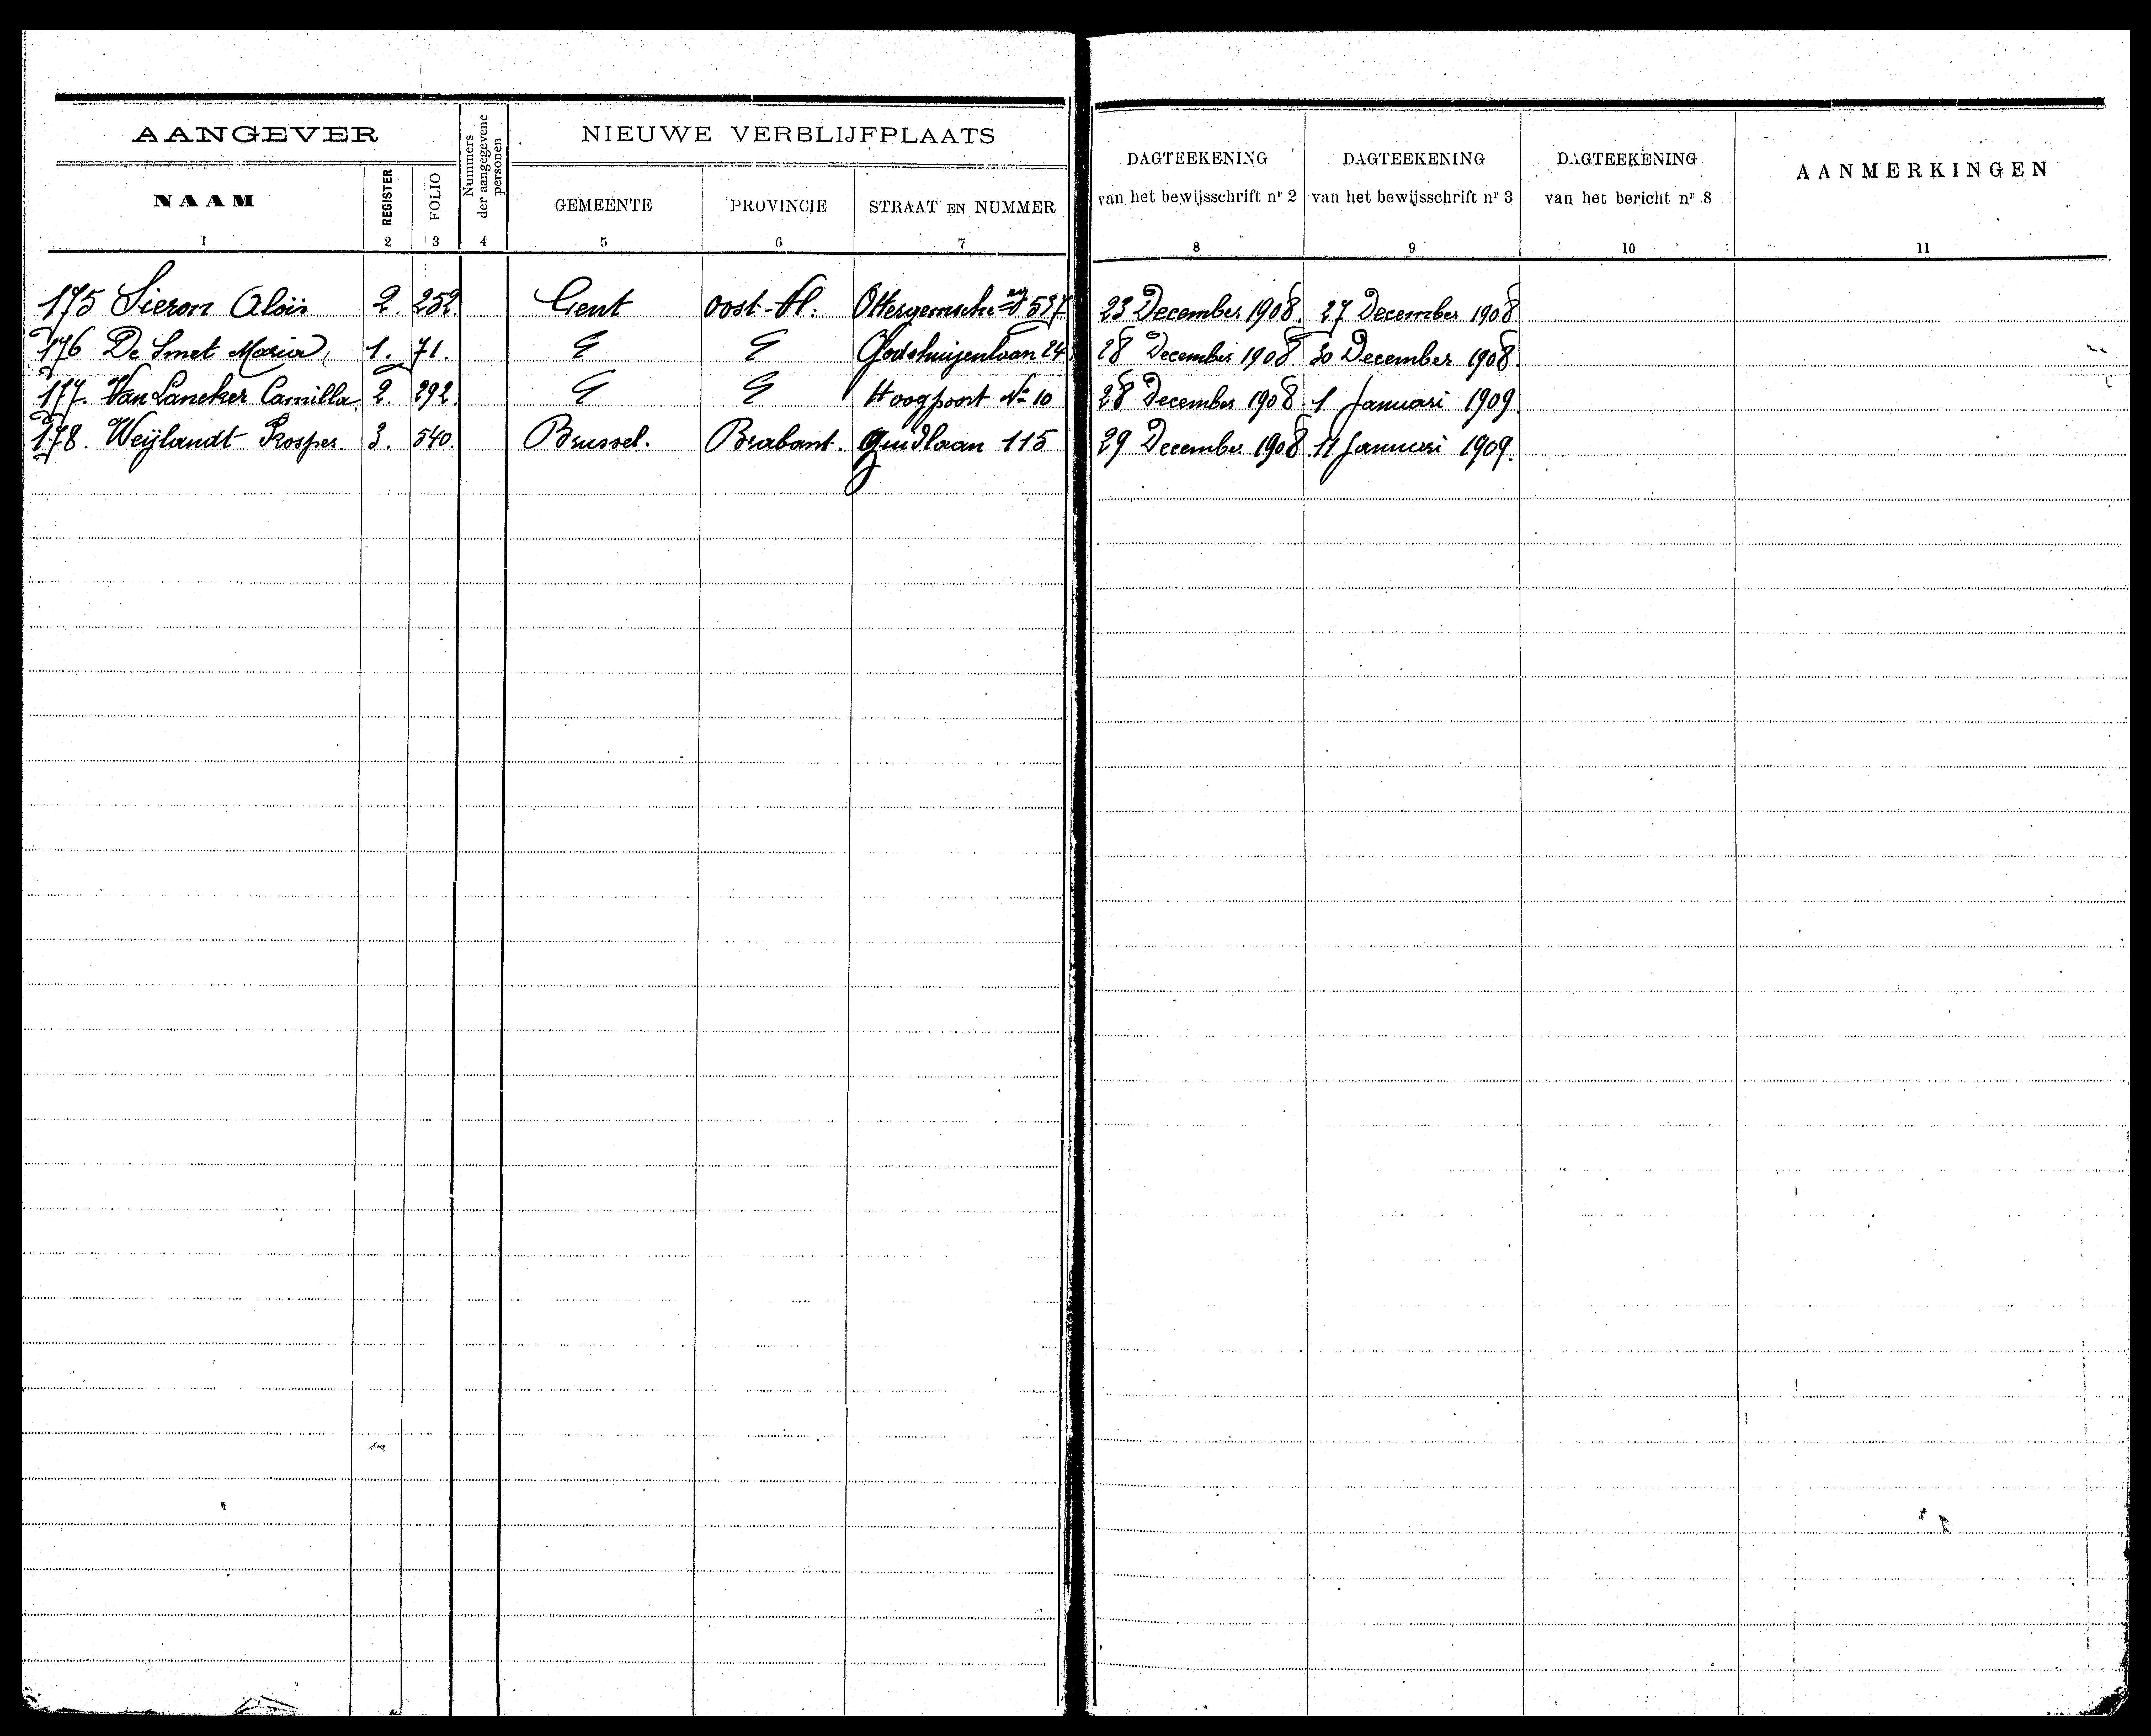 AANGEVER
Nummers der aangegevene personen
NIEUWE VERBLIJFPLAATS
NAAM
REGISTER
FOLIO
GEMEENTE
PROVINCIE
STRAAT EN NUMMER
DAGTEEKENING van het bewijsschrift nr 2
DAGTEEKENING van het bewijsschrift nr 3
DAGTEEKENING van het bericht nr 8
AANMERKINGEN
1 2 3 4 5 6 7 8 9 10 11
175 Sieron Aloïs 2. 252. Gent Oost-Vl. Ottergemsche 537 23 December 1908. 27 December 1908
176 De Smet Maria, 1. 71. Godshuijenlaan 24 28 December 1908 30 December 1908.
177. Van Laneker Camilla 2. 292. Hoogpoort No 10 28 December 1908. 1 Januari 1909.
178. Weijlandt Prosper. 3. 540. Brussel. Brabant. Zuidlaan 115 29 December 1908 11 Januari 1909.